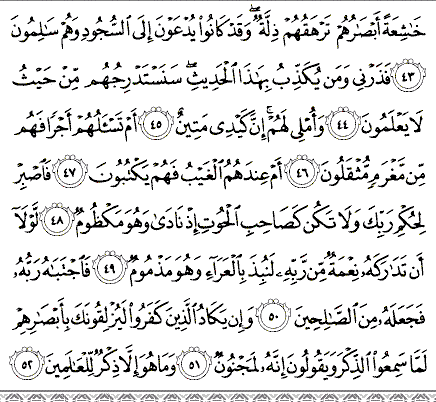 خَٰشِعَةً أَبۡصَٰرُهُمۡ تَرۡهَقُهُمۡ ذِلَّةٞۖ وَقَدۡ كَانُواْ يُدۡعَوۡنَ إِلَى ٱلسُّجُودِ وَهُمۡ سَٰلِمُونَ
٤٣ فَذَرۡنِي وَمَن يُكَذِّبُ بِهَٰذَا ٱلۡحَدِيثِۖ سَنَسۡتَدۡرِجُهُم مِّنۡ حَيۡثُ
لَا يَعۡلَمُونَ ٤٤ وَأُمۡلِي لَهُمۡۚ إِنَّ كَيۡدِي مَتِينٌ ٤٥ أَمۡ تَسۡـَٔلُهُمۡ أَجۡرٗا فَهُم
مِّن مَّغۡرَمٖ مُّثۡقَلُونَ ٤٦ أَمۡ عِندَهُمُ ٱلۡغَيۡبُ فَهُمۡ يَكۡتُبُونَ ٤٧ فَٱصۡبِرۡ
لِحُكۡمِ رَبِّكَ وَلَا تَكُن كَصَاحِبِ ٱلۡحُوتِ إِذۡ نَادَىٰ وَهُوَ مَكۡظُومٞ ٤٨ لَّوۡلَآ
أَن تَدَٰرَكَهُۥ نِعۡمَةٞ مِّن رَّبِّهِۦ لَنُبِذَ بِٱلۡعَرَآءِ وَهُوَ مَذۡمُومٞ ٤٩ فَٱجۡتَبَٰهُ رَبُّهُۥ
فَجَعَلَهُۥ مِنَ ٱلصَّٰلِحِينَ ٥٠ وَإِن يَكَادُ ٱلَّذِينَ كَفَرُواْ لَيُزۡلِقُونَكَ بِأَبۡصَٰرِهِمۡ
لَمَّا سَمِعُواْ ٱلذِّكۡرَ وَيَقُولُونَ إِنَّهُۥ لَمَجۡنُونٞ ٥١ وَمَا هُوَ إِلَّا ذِكۡرٞ لِّلۡعَٰلَمِينَ ٥٢